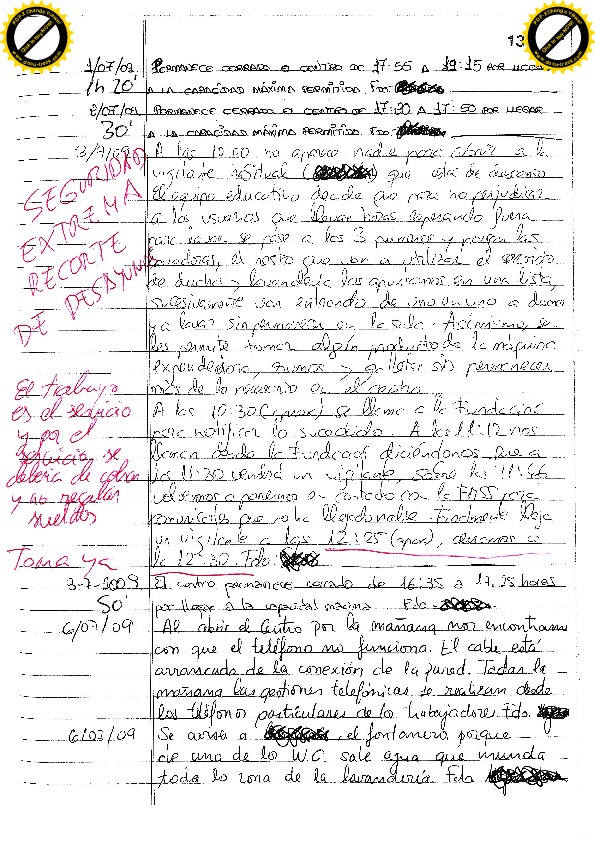 13
1/07/09 PERMANECE CERRADO EL CENTRO DE 17:55 A 19:15 POR LLEGAR
1h 20' A LA CAPACIDAD MÁXIMA PERMITIDA. Fdo:
2/07/09 PERMANECE CERRADO EL CENTRO DE 17:20 A 17:50 POR LLEGAR
30' A LA CAPACIDAD MÁXIMA PERMITIDA. Fdo:
3/7/09 A las 10:00 no aparece nadie para abrir a la
vigilante residual ( ) que está de descanso
el equipo educativo decide que para no perjudicar
a los usuarios que llevar horas esperando fuera
para lavar se pase a los 3 primeros y pongan las
lavadoras, el resto que van a utilizar el servicio
de ducha y lavandería los apuntamos en una lista,
sucesivamente van entrando de uno en uno a ducha
y a lavar sin permanecer en la sala. Asimismo se
les permite tomar algún producto de la máquina
expendedora, zumos y sin permanecer
más de lo necesario en el centro.
A las 10:30 (aprox) se llama a la Fundación
para notificar lo sucedido. A las 11:12 nos
llaman desde la Fundación diciéndonos que a
las 11:30 vendrá un vigilante, sobre las 11:56
volvemos a ponernos en contacto con la FASS para
comunicarles que no ha llegado nadie. Finalmente llega
un vigilante a las 12:25 (aprox), abrimos a
la 12:30. Fdo:
SEGURIDAD
EXTREMA
RECORTE
DE DESAYUNO
El trabajo
es el servicio
y por el
servicio se
debería de cobrar
y no regalar
sueldos
Toma ya
3-7-2009 El centro permanece cerrado de 16:35 a 17:25 horas
50' por llegar a la capacidad máxima Fdo.
6/07/09 Al abrir el Centro por la mañana nos encontramos
con que el teléfono no funciona. El cable está
arrancado de la conexión de la pared. Todas la
mañana las gestiones telefónicas se realizan desde
los teléfonos particulares de los trabajadores. Fdo.
6/07/09 Se avisa a , el fontanero porque
de uno de los W.C. sale agua que inunda
toda la zona de la lavandería Fdo